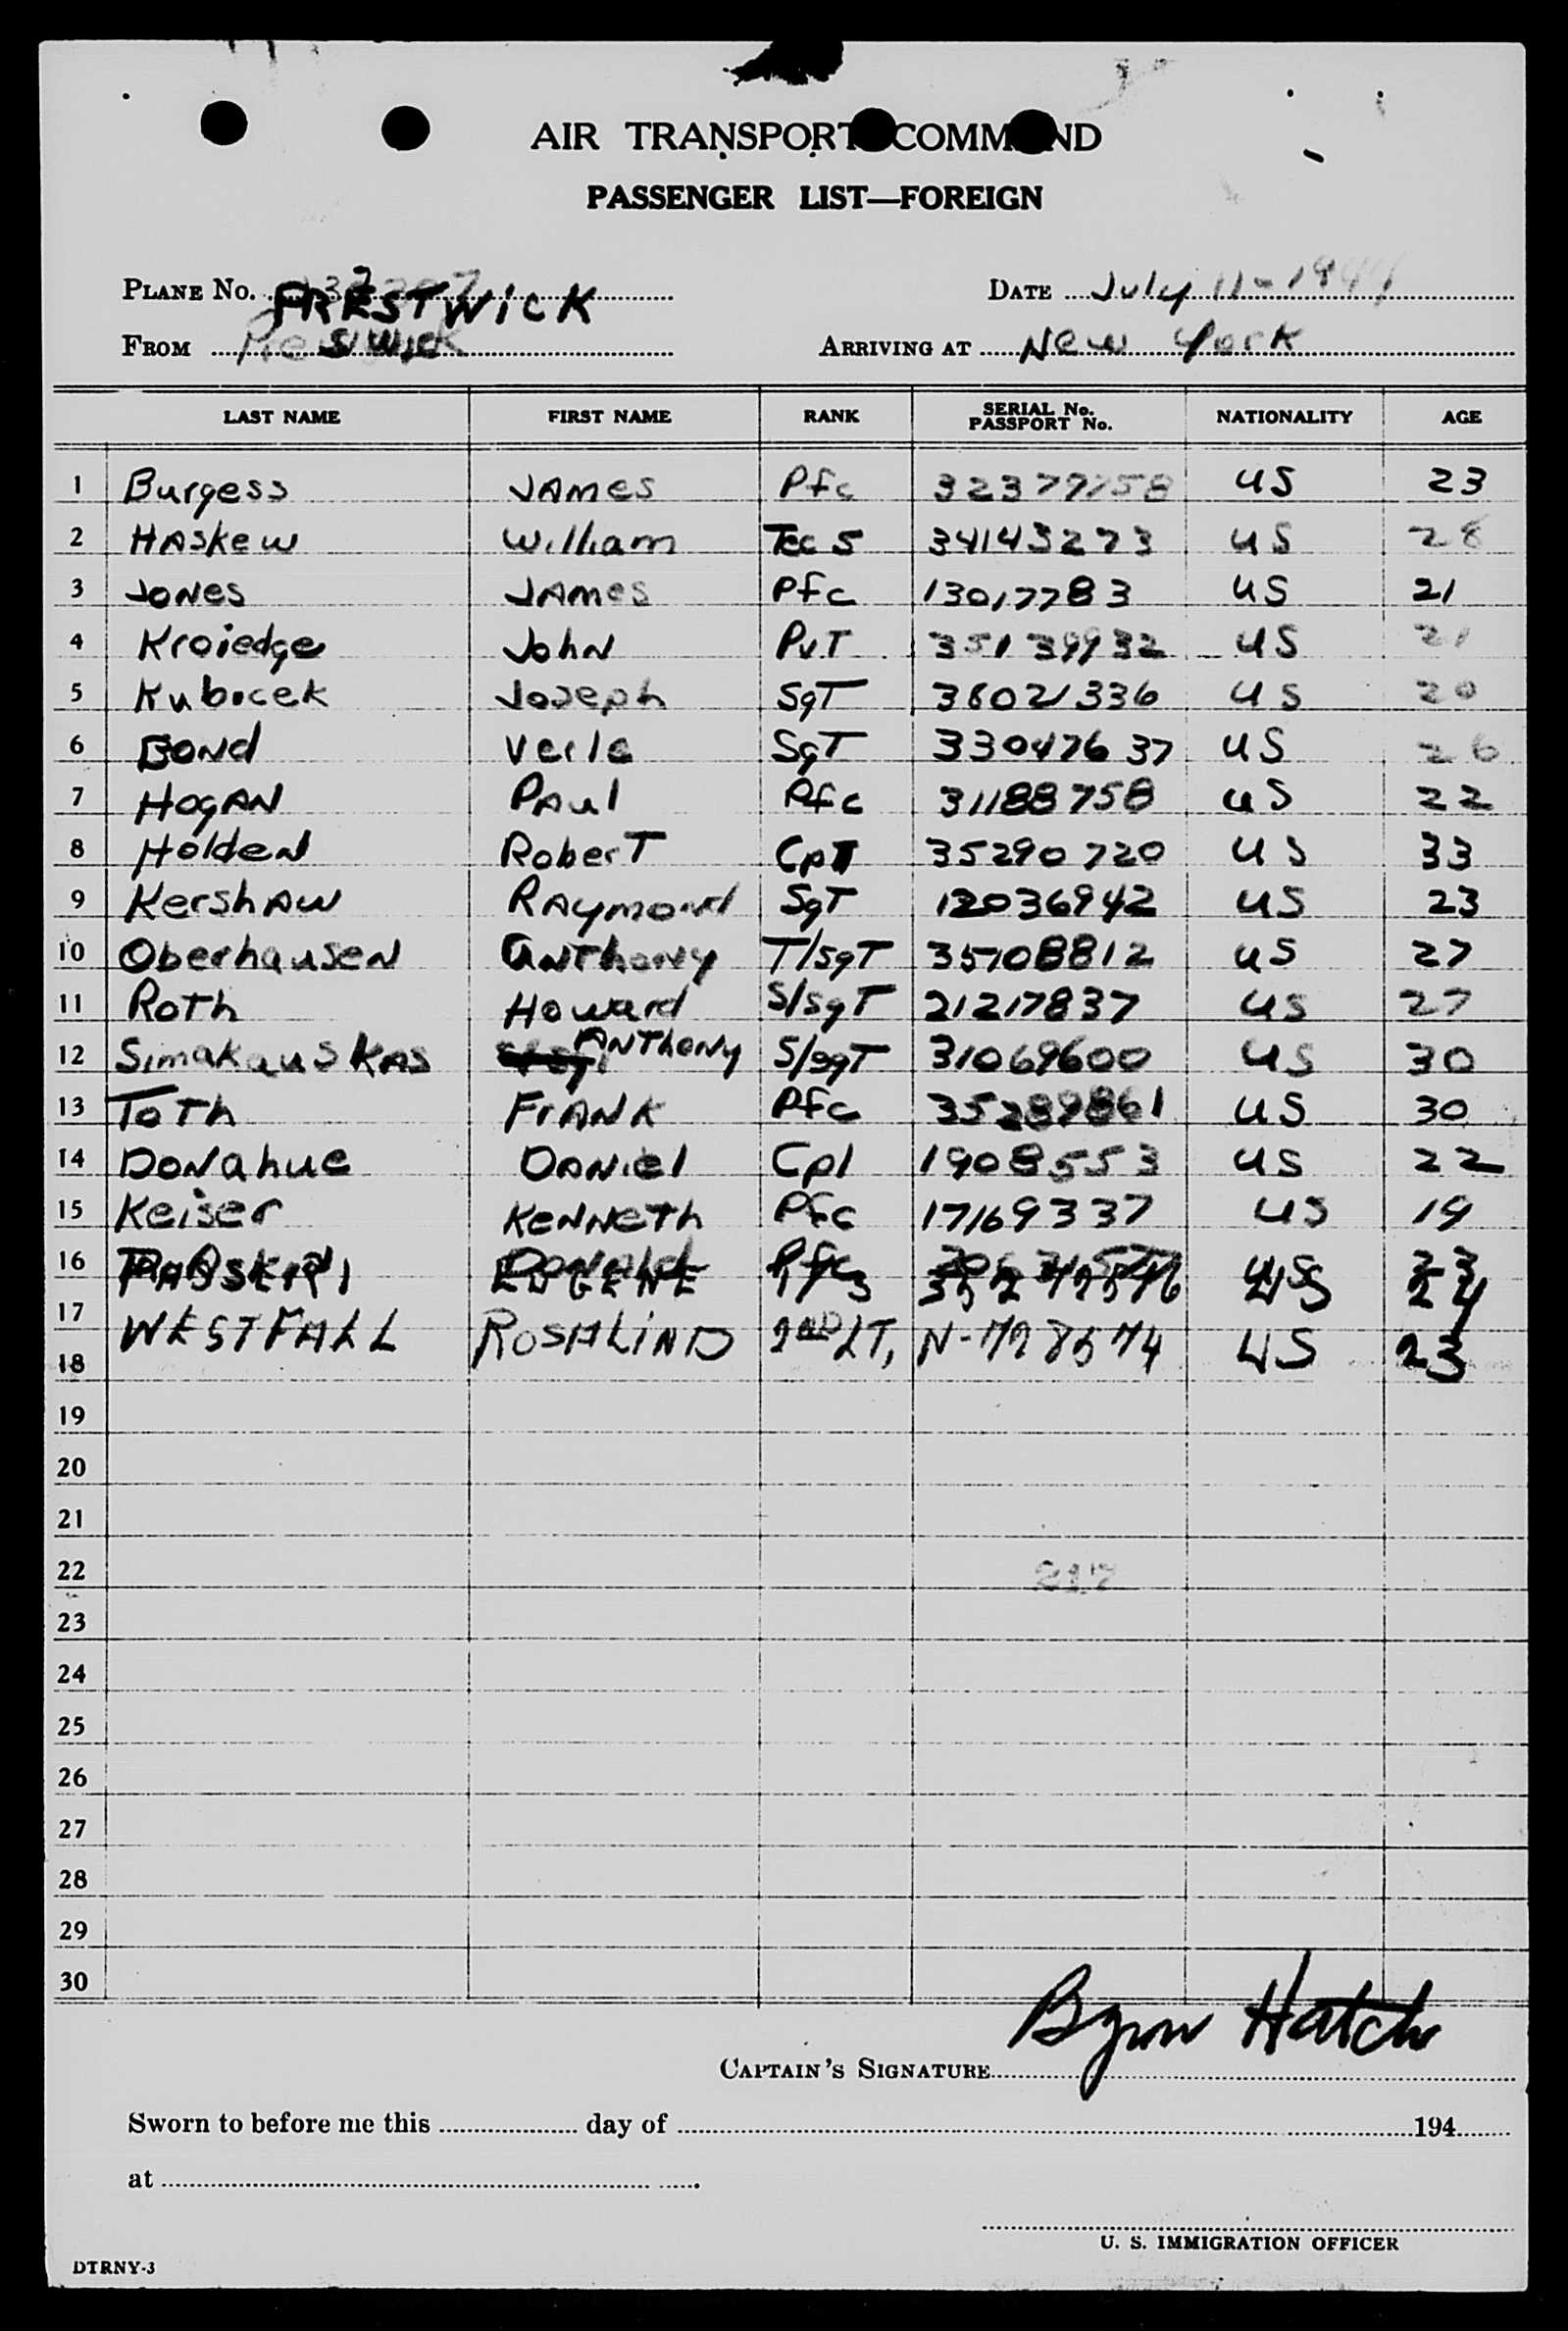 AIR TRANSPORT COMMAND
PASSENGER LIST—FOREIGN
PLANE No. PRESTWICK DATE July 11-1944
FROM ARRIVING AT New York
LAST NAME FIRST NAME RANK SERIAL No. PASSPORT No. NATIONALITY AGE
1 Burgess JAMES Pfc US 23
2 HASKEW William Tec 5 34143273 US 28
3 JONES JAMES Pfc 13017783 US 21
4 Kroiedge JOHN PvT 35139932 US 21
5 Kubicek Joseph SgT 38021336 US 20
6 BOND Verle SgT 33047637 US 26
7 HOGAN PAul Pfc 31188758 US 22
8 HoldeN RoberT CpT 35290720 US 33
9 KershAW RAymond SgT 12036942 US 23
10 OberhauseN ANThoNy T/SgT 35708812 US 27
11 RoTh Howard S/SgT 21217837 US 27
12 SimakausKAS ANThoNy S/SgT 31069600 US 30
13 ToTh FrANK Pfc US 30
14 DoNahue DANiel Cpl 1908553 US 22
15 Keiser KeNNeTh Pfc 17169337 US 19
16 EUGENE US 24
17 WESTFALL ROSALIND 2ND LT, N-728574 US 23
18
19
20
21
22
23
24
25
26
27
28
29
30
CAPTAIN'S SIGNATURE Byron Hatch
Sworn to before me this day of 194
at
U. S. IMMIGRATION OFFICER
DTRNY-3